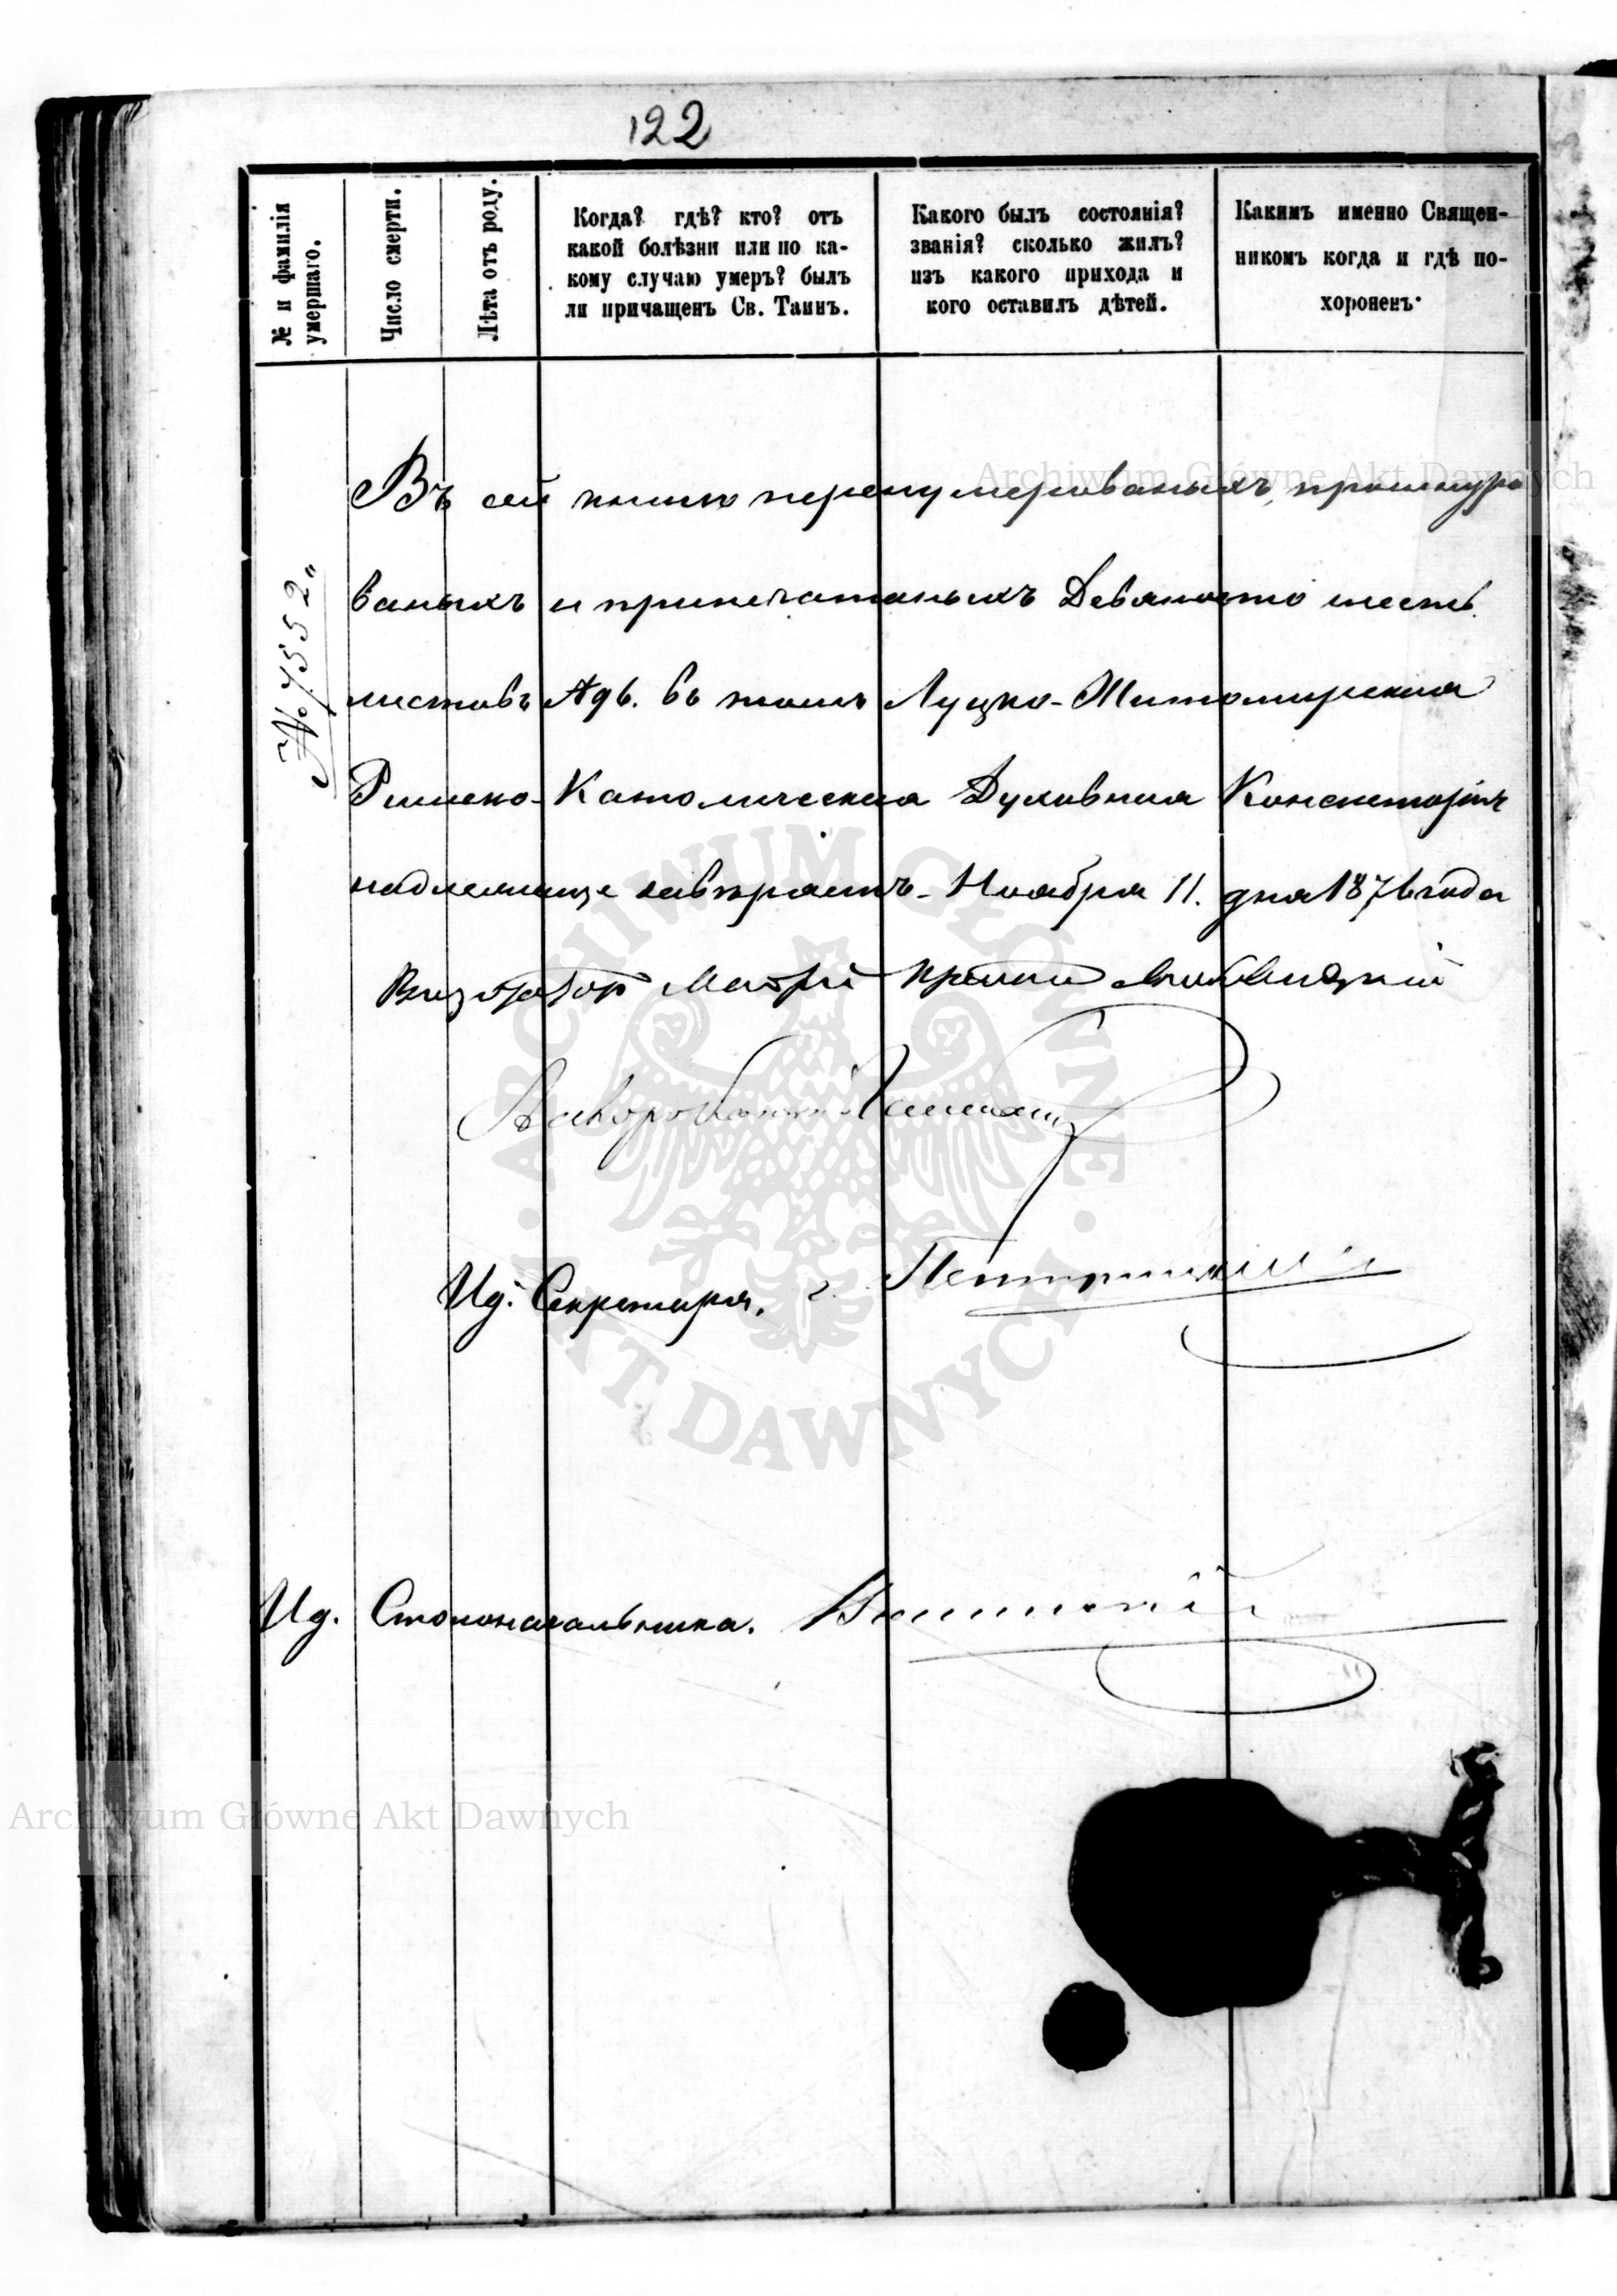 122
№ и фамилія
умершаго.
Число смерти.
Лѣта отъ роду.
Когда? гдѣ? кто? отъ
какой болѣзни или по ка-
кому случаю умеръ? былъ
ли причащенъ Св. Таинъ.
Какого былъ состоянія?
званія? сколько жилъ?
изъ какого прихода и
кого оставилъ дѣтей.
Какимъ именно Священ-
никомъ когда и гдѣ по-
хороненъ.
Въ сей книгѣ перенумерованыхъ, прошнуро
ваныхъ и припечатаныхъ Девяносто шесть
листовъ №96. въ томъ Луцко-Житомирская
Римско-Католическая Духовная Консисторія
надлежаще завѣряетъ. Ноября 11. дня 1876 года
№ 7552
Визитаторъ
Ид. Секретаря.
Ид. Столоначальника.
Archiwum Główne Akt Dawnych
ARCHIWUM GŁÓWNE AKT DAWNYCH
Archiwum Główne Akt Dawnych